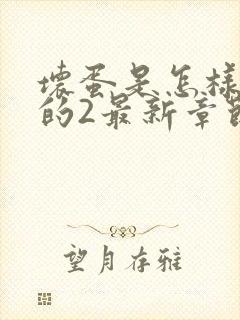 坏蛋是怎样
的2最新章节
望月存雅